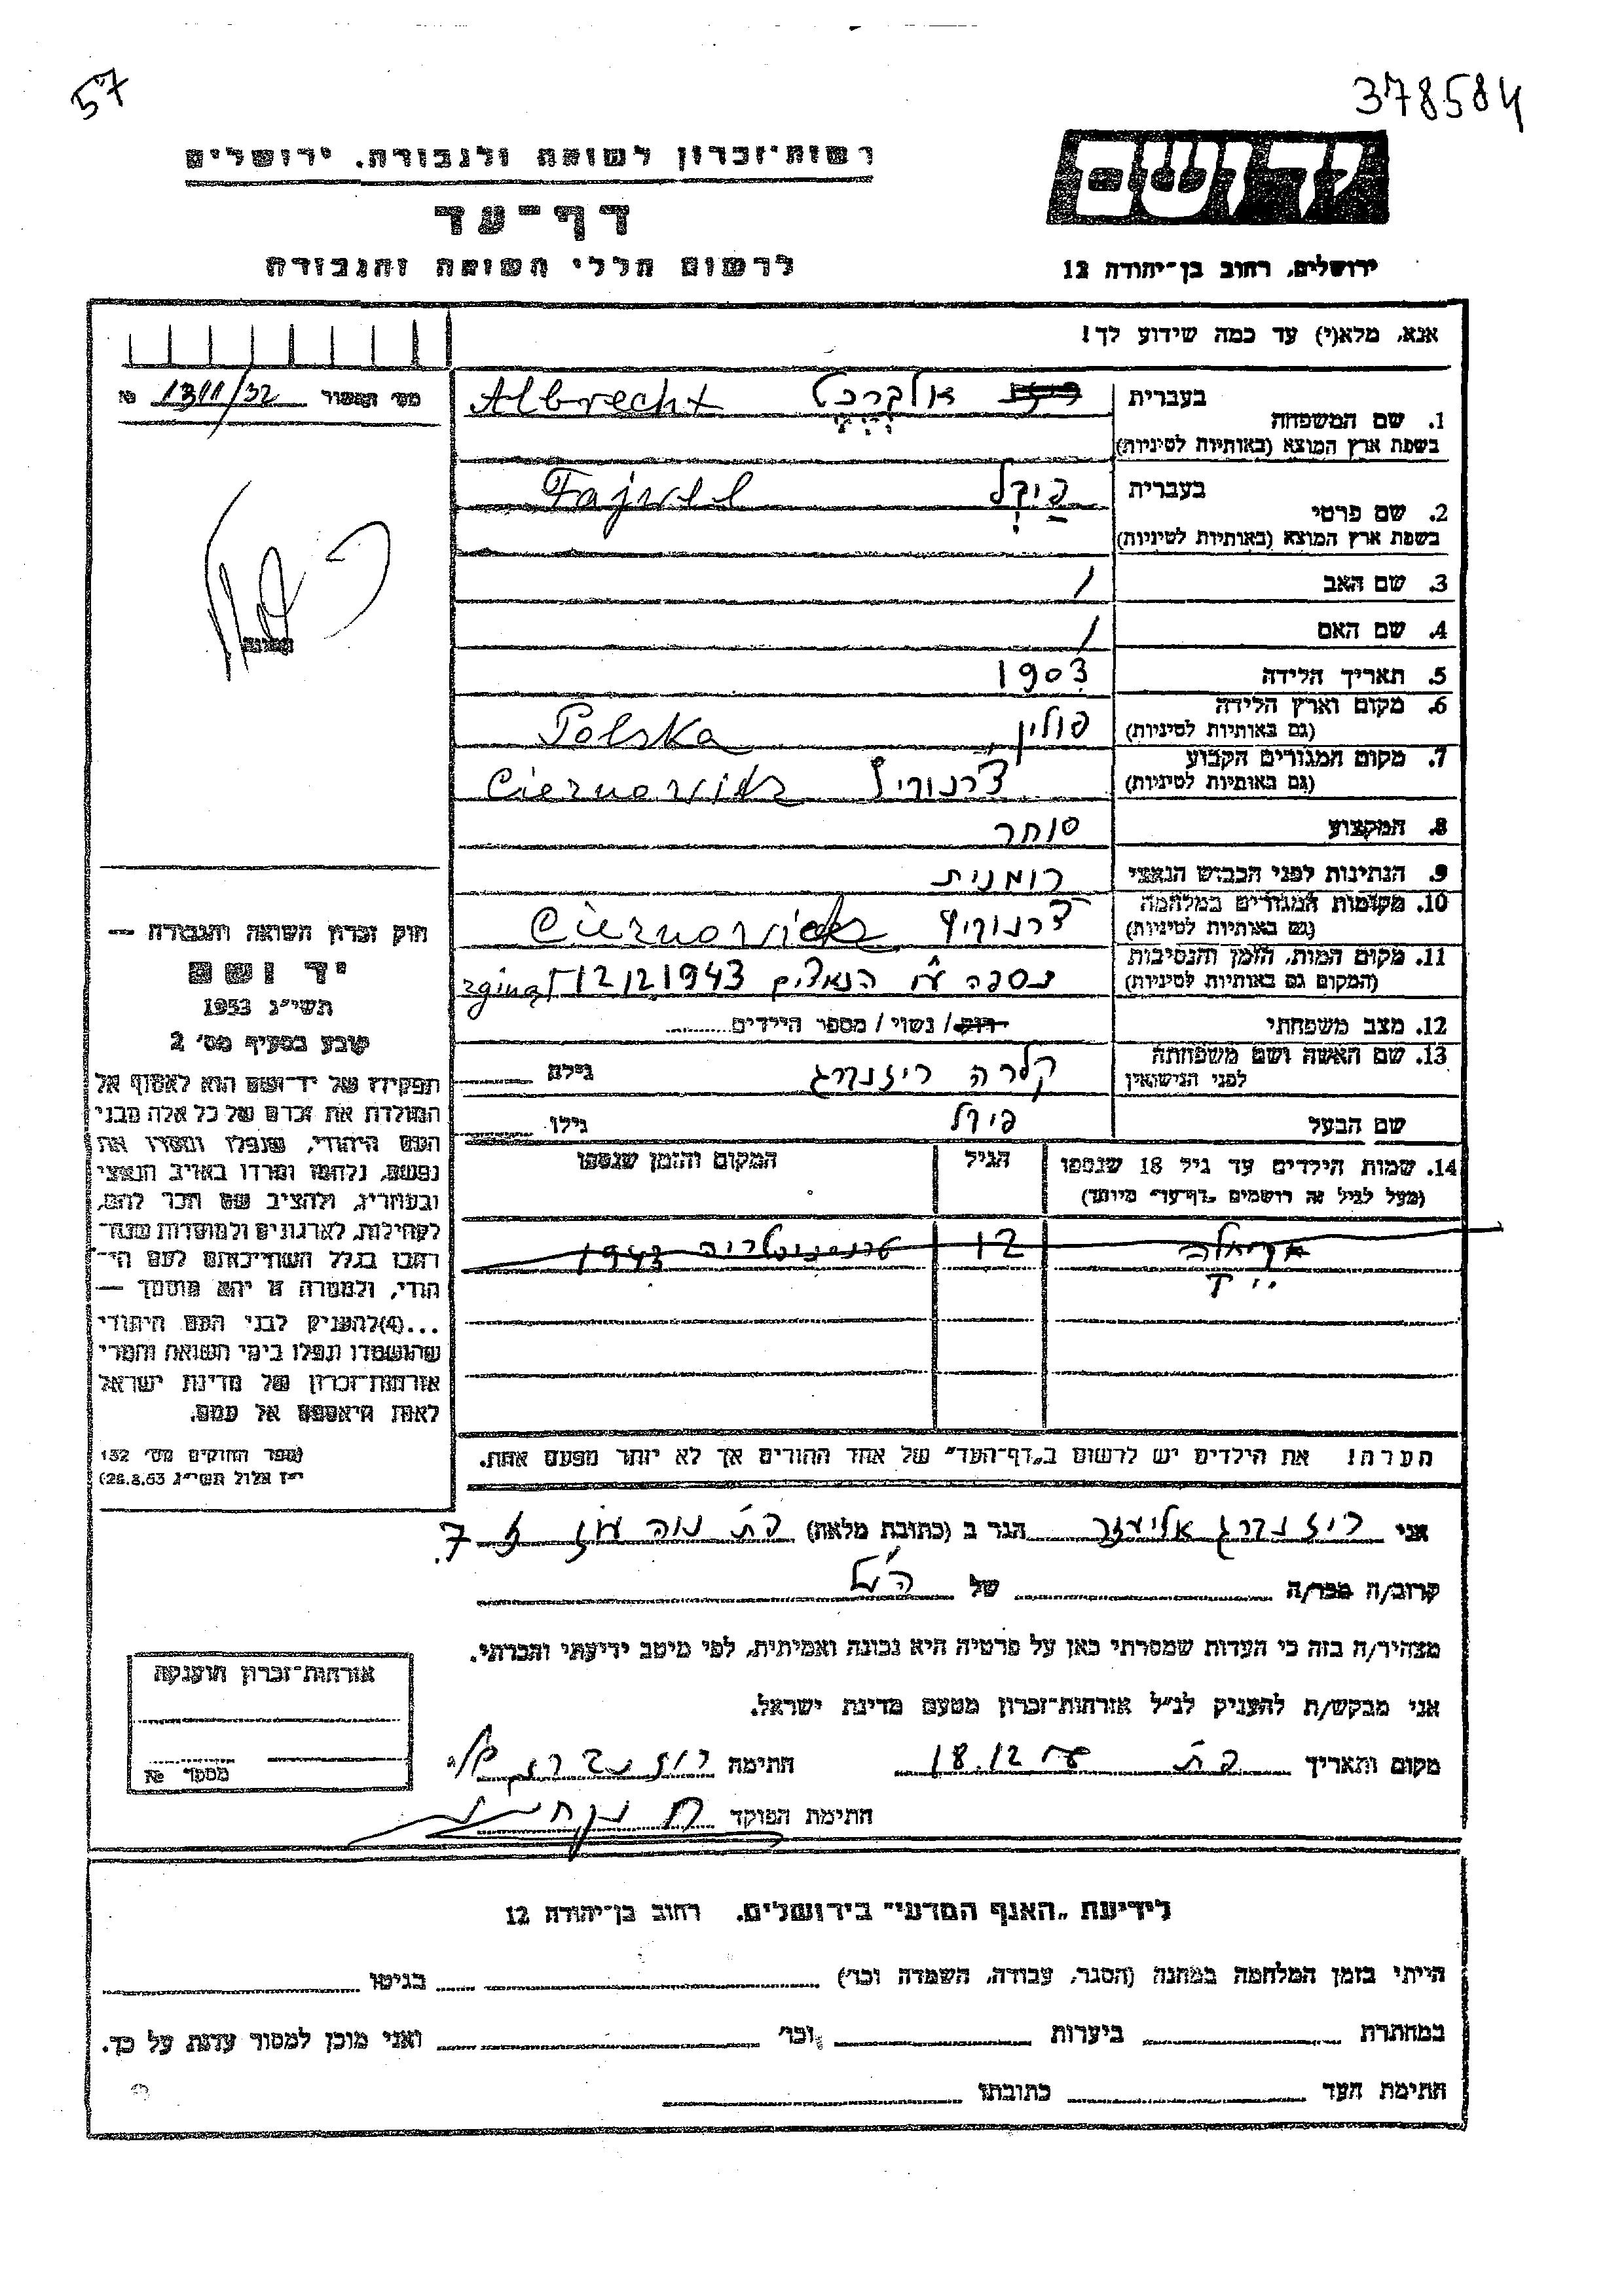 57
378584
רשות־זכרון לשואה ולגבורה, ירושלים
דף־עד
לרשום חללי השואה והגבורה
יד ושם
ירושלים, רחוב בן־יהודה 12
אנא, מלא(י) עד כמה שידוע לך!
מס׳ הספור 1311/32 №
1. שם המשפחה
בעברית אלברכט Albrecht
בשפת ארץ המוצא (באותיות לטיניות)
2. שם פרטי
בעברית פיבל Fajwel
בשפת ארץ המוצא (באותיות לטיניות)
3. שם האב /
4. שם האם /
5. תאריך הלידה 1903
6. מקום וארץ הלידה פולין Polska
(גם באותיות לטיניות)
7. מקום המגורים הקבוע
(גם באותיות לטיניות)
8. המקצוע סוחר
9. הנתינות לפני הכבוש הנאצי רומנית
10. מקומות המגורים במלחמה
(גם באותיות לטיניות)
11. מקום המות, הזמן והנסיבות נספה ע״י הנאצים 12/2 1943 zginął
(המקום גם באותיות לטיניות)
12. מצב משפחתי רווק / נשוי / מספר הילדים
13. שם האשה ושם משפחתה
לפני הנישואין קלרה רוזנברג גילה
שם הבעל פיבל גילו
14. שמות הילדים עד גיל 18 שנספו הגיל המקום והזמן שנספו
(מעל לגיל זה רושמים „דף־עד״ מיוחד)
12 טרנסניסטריה 1943
הערה! את הילדים יש לרשום ב„דף־העד״ של אחד ההורים אך לא יותר מפעם אחת.
חוק זכרון השואה והגבורה —
יד ושם
תשי״ג 1953
קובע בסעיף מס׳ 2
תפקידו של יד־ושם הוא לאסוף אל
המולדת את זכרם של כל אלה מבני
העם היהודי, שנפלו ומסרו את
נפשם, נלחמו ומרדו באויב הנאצי
ובעוזריו, ולהציב שם וזכר להם,
לקהילות, לארגונים ולמוסדות שנח־
רבו בגלל השתייכותם לעם היה־
ודי, ולמטרה זו יהא מוסמך —
...(4)להעניק לבני העם היהודי
שהושמדו ונפלו בימי השואה והמרי
אזרחות־זכרון של מדינת ישראל
לאות היאספם אל עמם.
(ספר החוקים מס׳ 132
י״ז אלול תשי״ג 28.8.53)
אני רוזנברג אליעזר הגר ב (כתובת מלאה) פ״ת נוה עוז 7
קרוב/ה מכר/ה של הנ״ל
מצהיר/ה בזה כי העדות שמסרתי כאן על פרטיה היא נכונה ואמיתית, לפי מיטב ידיעתי והכרתי.
אני מבקש/ת להעניק לנ״ל אזרחות־זכרון מטעם מדינת ישראל.
מקום ותאריך פ״ת 18.12 חתימה
חתימת הפוקד
אזרחות־זכרון הוענקה
מספר №
לידיעת „האגף המדעי״ בירושלים, רחוב בן־יהודה 12
הייתי בזמן המלחמה במחנה (הסגר, עבודה, השמדה וכו׳) בגיטו
במחתרת ביערות וכו׳ ואני מוכן למסור עדות על כך.
חתימת העד כתובתו